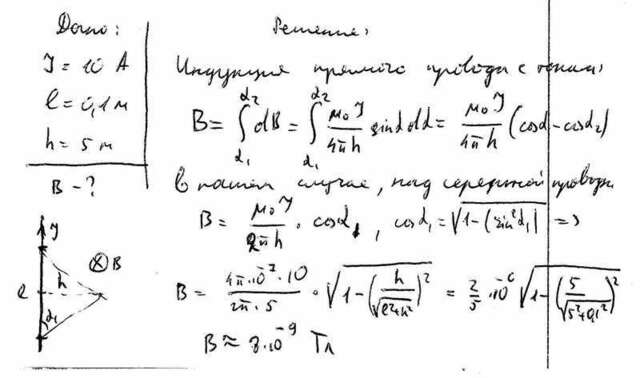 Дано:
J = 10 A
l = 0,1 м
h = 5 м
B - ?
J
⊗ B
h
l
α₁
Решение:
Индукция прямого провода с током:
B = ∫_{α₁}^{α₂} dB = ∫_{α₁}^{α₂} μ₀J/4πh sinα dα = μ₀J/4πh (cosα - cosα₂)
в нашем случае, над серединой провода
B = μ₀J/2πh · cosα₁, cosα₁ = √(1 - (sin²α₁)) =>
B = 4π·10⁻⁷·10/2π·5 · √(1 - (h/√(l²+h²))²) = 2/5·10⁻⁶ √(1 - (5/√(5²+0,1²))²)
B ≈ 8·10⁻⁹ Тл